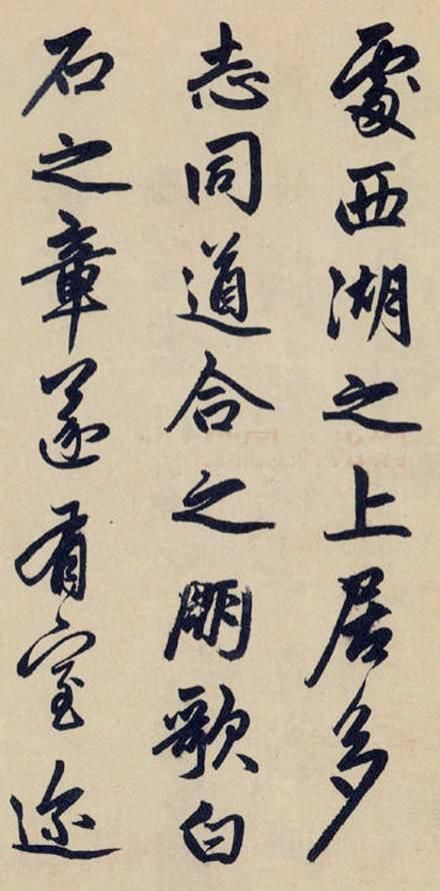 處西湖之上居多
志同道合之朋歌白
石之章遂有室迩